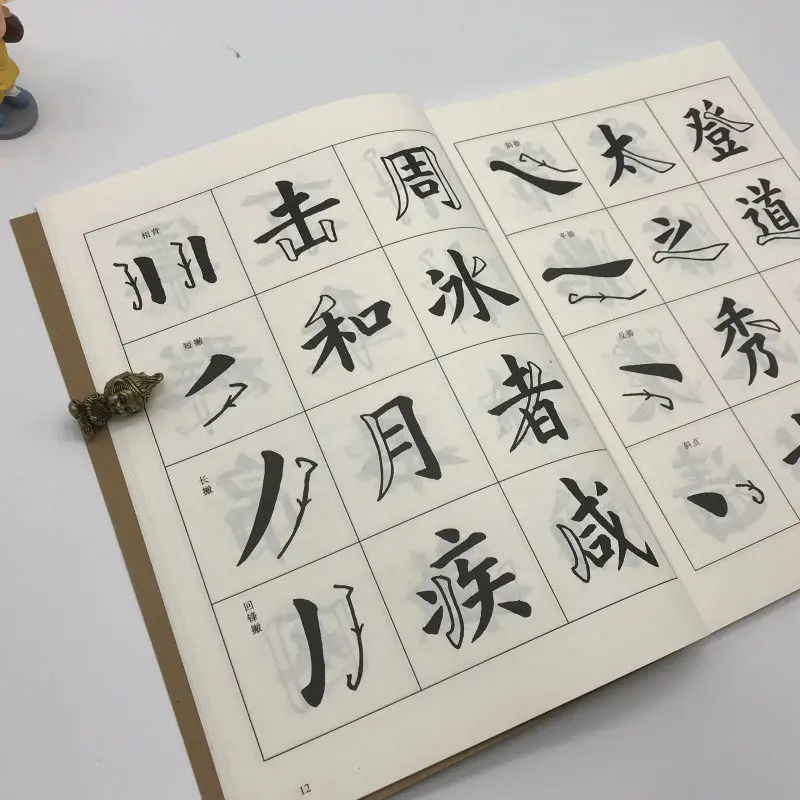 相背
击 周
短撇
和 冰
长撇
月 者
回锋撇
疾 咸
12
斜捺
太 登
平捺
之 道
反捺
秀
斜点